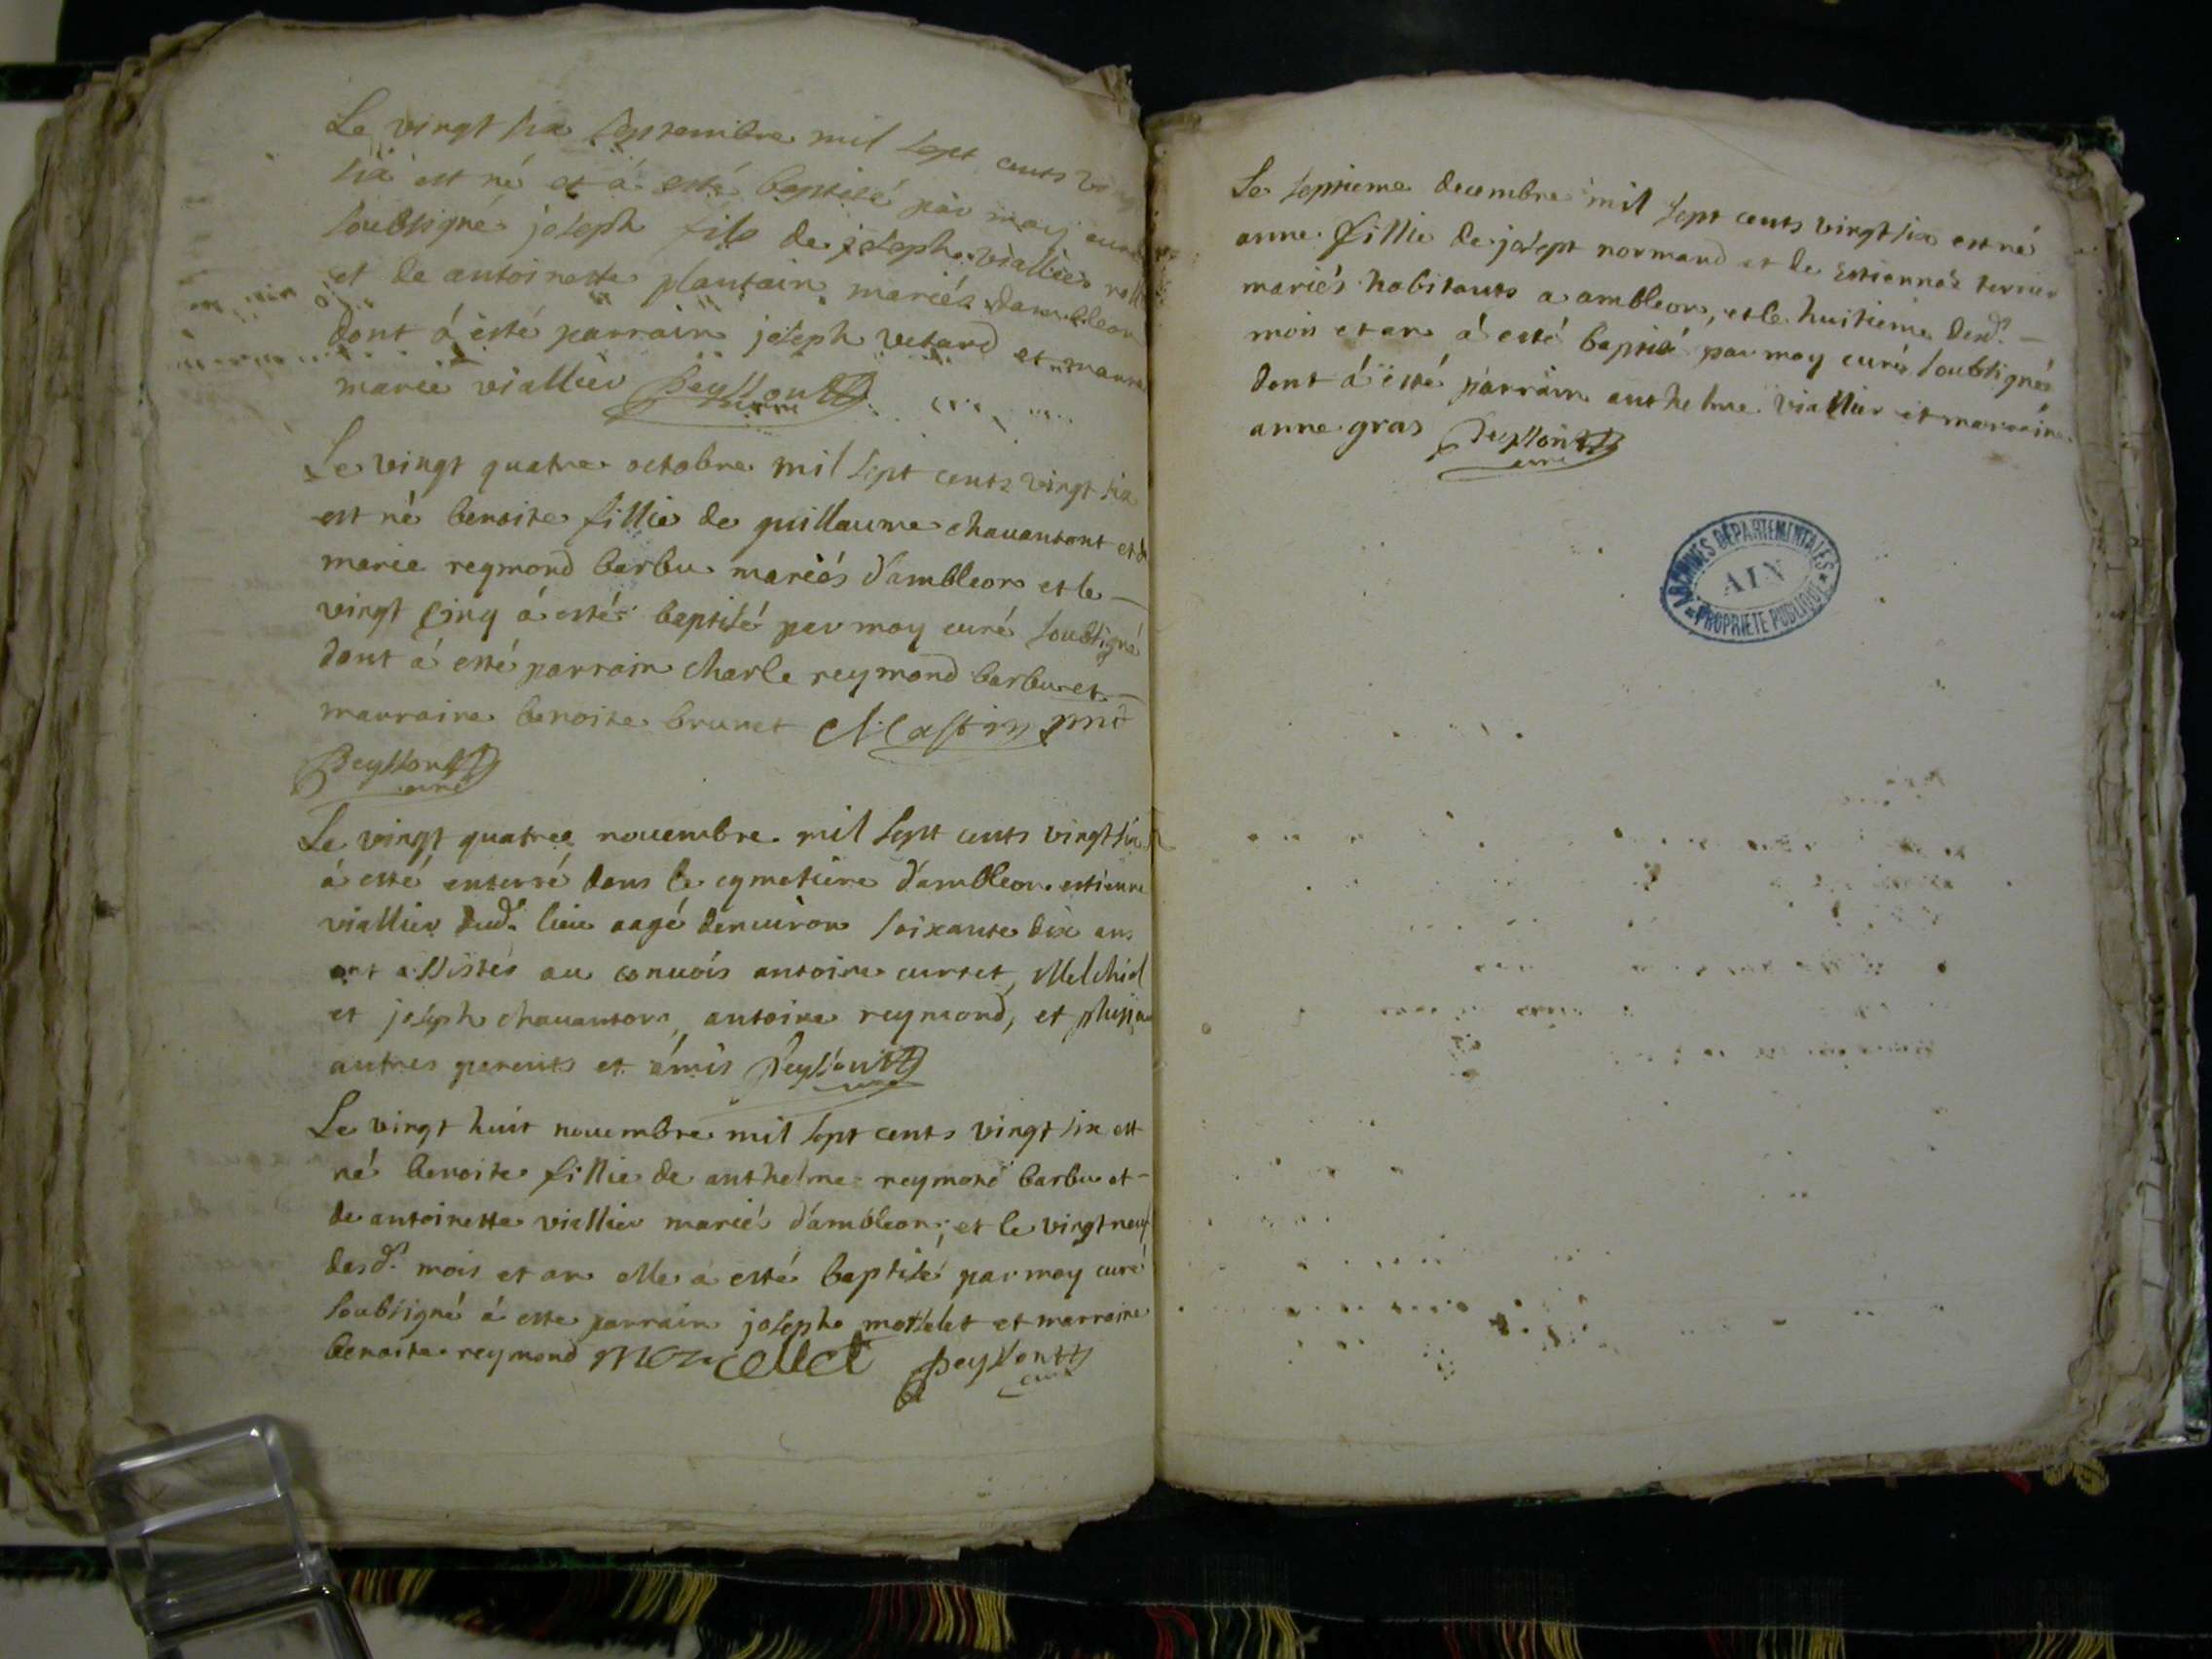 Le vingt six septembre mil sept cents ving
six est né et a esté baptisé par moy curé
soubsigné joseph fils de joseph viallier
et de antoinette plantain mariés dambleon
dont á esté parrain joseph vetard et marraine
marie viallier Peyssont
curé
Le vingt quatre octobre mil sept cents vingt six
est né benoite fillie de guillaume chavantont et de
marie reymond barbu mariés d'ambleon et le
vingt cinq á esté baptisé par moy curé soubsigné
dont á esté parrain charle reymond barbu et
marraine benoite brunet
Peyssont
curé
Le vingt quatre novembre mil sept cents vingt six
á esté enterré dans le cymetiere d'ambleon estienne
viallier dud. lieu aagé denviron soixante dix ans
ont assistés au convois antoine curtet, Melchiol
et joseph chavanton, antoine reymond, et plusieu
autres parents et ámis Peyssont
curé
Le vingt huit novembre mil sept cents vingt six est
né benoite fillie de anthelme reymond barbu et
de antoinette viallier mariés d'ambleon, et le vingt neuf
desd. mois et an elle a esté baptisé par moy curé
soubsigné á este parrain joseph et marraine
benoite reymond moncellet Peyssont
curé
Le septieme decembre mil sept cents vingt six est né
anne fillie de josept normand et de Estiennaz terrier
mariés habitants a ambleon, et le huitieme desd.
mois et an á esté baptisé par moy curé soubsigné
dont á esté parrain anthelme viallier et marraine
anne gras Peyssont
curé
ARCHIVES DÉPARTEMENTALES
AIN
PROPRIETE PUBLIQUE